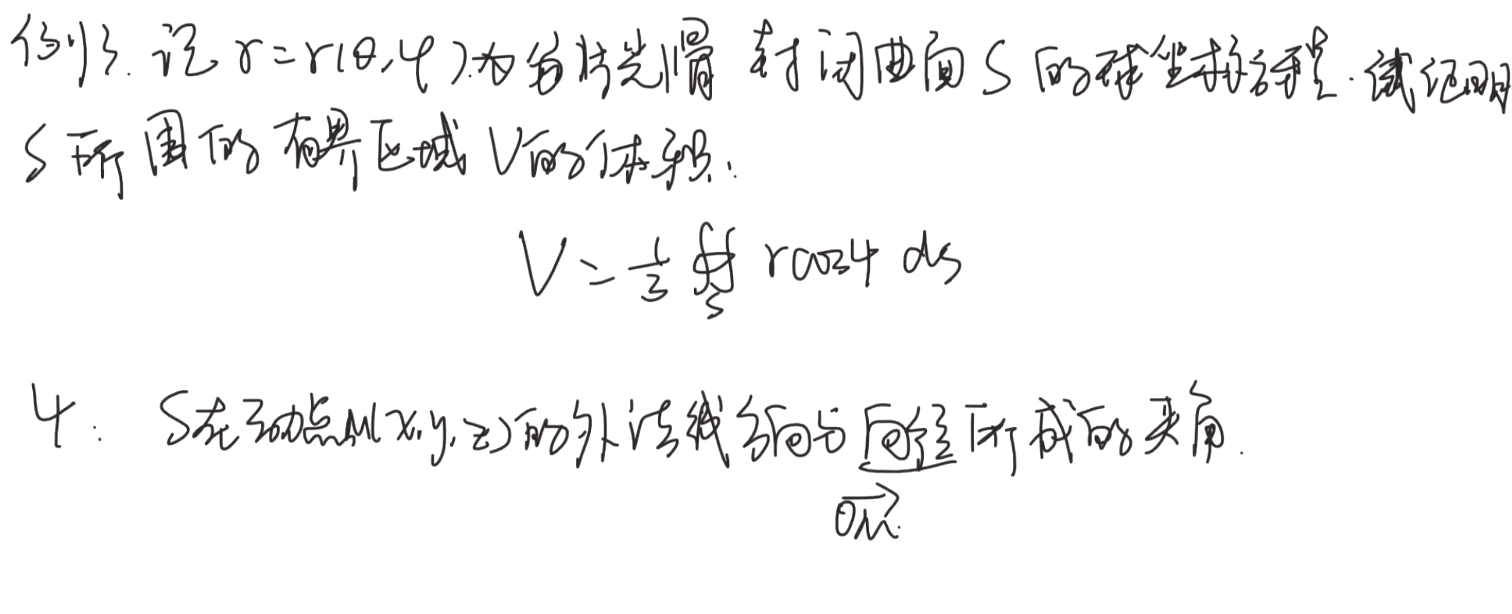 例3. 记 r=r(θ,φ).为分片光滑 封闭曲面S的球坐标方程.试证明
S所围的有界区域V的体积:
V=\frac{1}{3}∯_S rcosψ ds
ψ: S在动点M(x,y,z)的外法线方向与向径所成的夹角.
\overrightarrow{OM}.